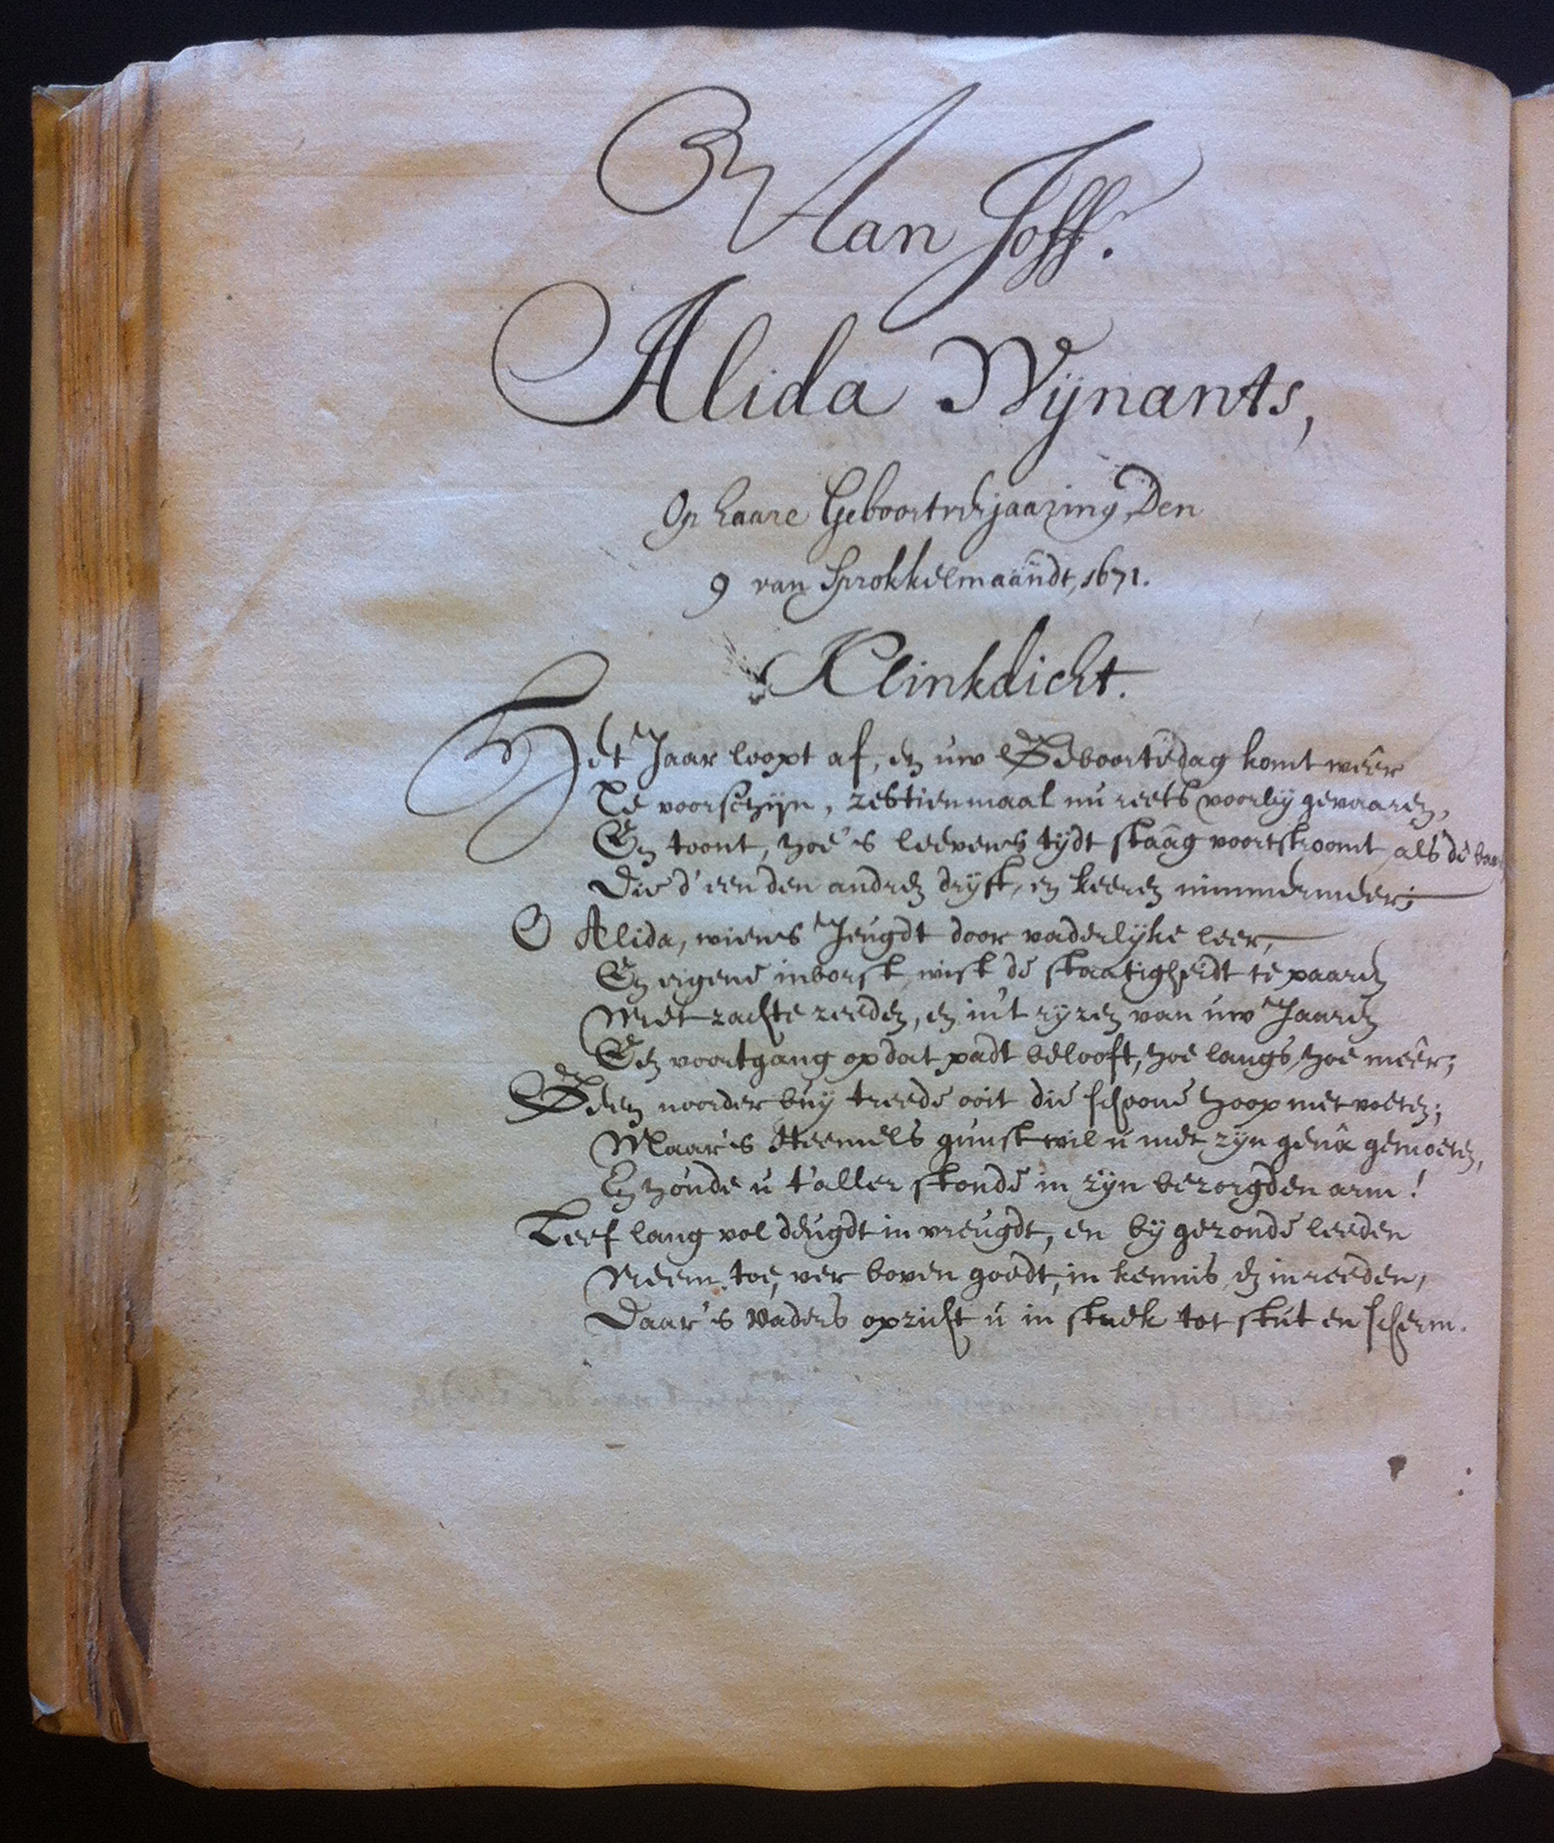 Aan Joffr.
Alida Wijnants,
Op haare Geboortverjaaring, Den
9 van Sprokkelmaandt, 1671.
Klinkdicht.
Het Jaar loopt af, en uw Geboortedag komt weêr
Te voorschijn, zestienmaal nu reets voorby gevaaren,
En toont, hoe 's leevens tydt staâg voortstroomt als de baaren,
Die d'een den andren dryft, en keeren nimmermeer;
O Alida, wiens Jeugdt door vaderlyke leer,
En eigene inborst, wist de staatigheidt te paaren
Met zachte zeeden, en in 't ryzen van uw Jaaren
Een voortgang op dat padt belooft, hoe langs hoe meêr;
Geen noorder buy treede ooit die schoone hoop met voeten;
Maar 's Heemels gunst wil u met zyn genâ gemoeten,
En houde u t'aller stonde in zyn bezorgden arm!
Leef lang vol deugdt in vreugdt, en by gezonde leeden
Neem toe, ver boven goedt, in kennis en in reeden,
Daar 's Vaders opzicht u in strek tot stut en scherm.